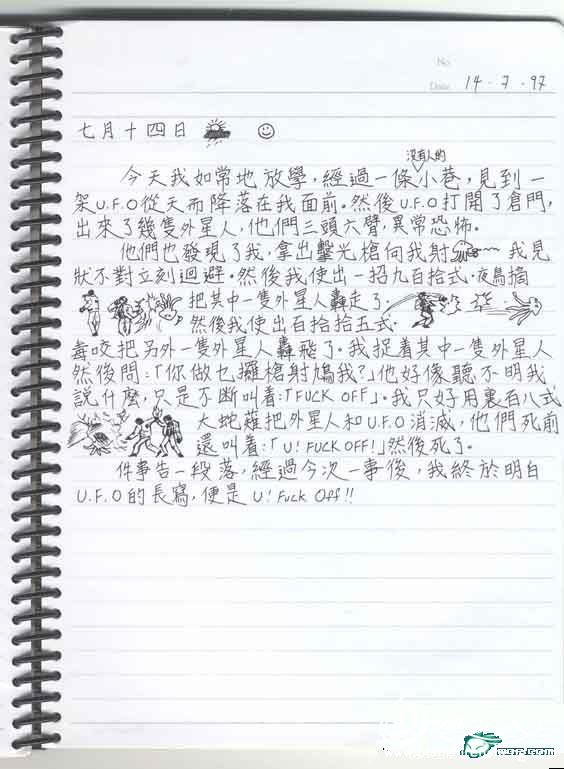 No
Date 14 . 7 . 97
七月十四日
沒有人的
今天我如常地放學,經過一條小巷,見到一
架U.F.O從天而降落在我面前.然後U.F.O打開了倉門,
出來了幾隻外星人,他們三頭六臂,異常恐怖.
他們也發現了我,拿出擊光槍向我射 我見
狀不對立刻迴避.然後我使出一招九百拾式.夜鳥摘
把其中一隻外星人轟走了.
然後我使出百拾拾五式.
毒咬把另外一隻外星人轟飛了.我捉着其中一隻外星人
然後問:「你做乜攞槍射鳩我?」他好像聽不明我
說什麼,只是不斷叫着:「FUCK OFF」.我只好用裏百八式
大蛇薙把外星人和U.F.O消滅,他們死前
還叫着:「U! FUCK OFF!」然後死了.
件事告一段落,經過今次一事後,我終於明白
U.F.O的長寫,便是U! Fuck Off!!